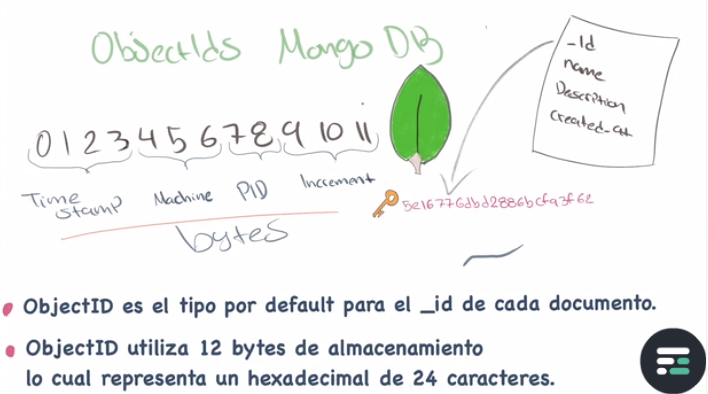 ObjectIds MongoDB
_Id
name
Description
created_at
0 1 2 3 4 5 6 7 8 9 10 11
Time stamp Machine PID Increment
5e16776dbd2886bcfa3f62
bytes
ObjectID es el tipo por default para el _id de cada documento.
ObjectID utiliza 12 bytes de almacenamiento
lo cual representa un hexadecimal de 24 caracteres.